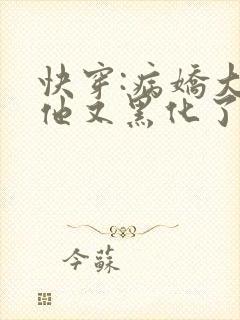 快穿:病娇大
他又黑化了
今蘇